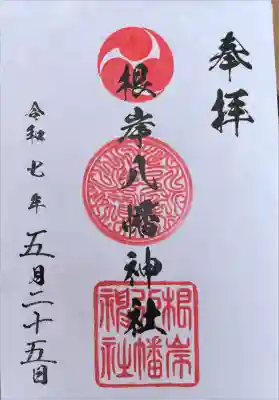 奉拝
根岸八幡神社
令和七年五月二十五日
根岸
八幡
神社